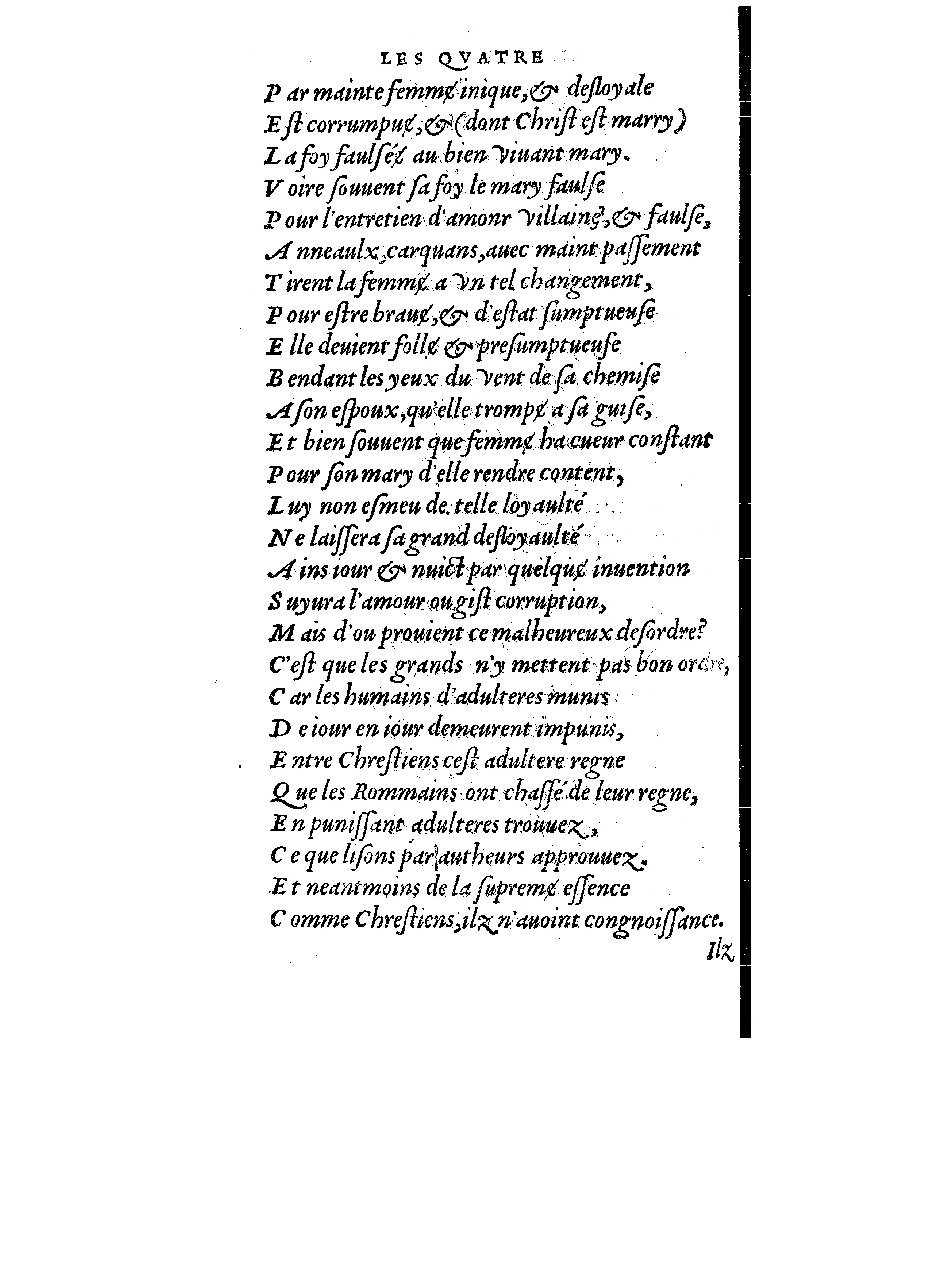 LES QVATRE
Par mainte femmɇ inique, & desloyale
Est corrumpuɇ, & (dont Christ est marry)
La foy faulséɇ au bien viuant mary.
Voire souuent sa foy le mary faulse
Pour l'entretien d'amonr villainɇ, & faulse,
Anneaulx, carquans, auec maint passement
Tirent la femmɇ a vn tel changement,
Pour estre brauɇ, & d'estat sumptueuse
Elle deuient follɇ & presumptueuse
Bendant les yeux du vent de sa chemise
A son espoux, qu'elle trompɇ a sa guise,
Et bien souuent que femmɇ ha cueur constant
Pour son mary d'elle rendre content,
Luy non esmeu de telle loyaulté
Ne laissera sa grand desloyaulté
Ains iour & nuict par quelquɇ inuention
Suyura l'amour ou gist corruption,
Mais d'ou prouient ce malheureux desordre?
C'est que les grands n'y mettent pas bon ordre,
Car les humains d'adulteres munis
De iour en iour demeurent impunis,
Entre Chrestiens cest adultere regne
Que les Rommains ont chassé de leur regne,
En punissant adulteres trouuez,
Ce que lisons par autheurs approuuez.
Et neantmoins de la supremɇ essence
Comme Chrestiens, ilz n'auoint congnoissance.
Ilz